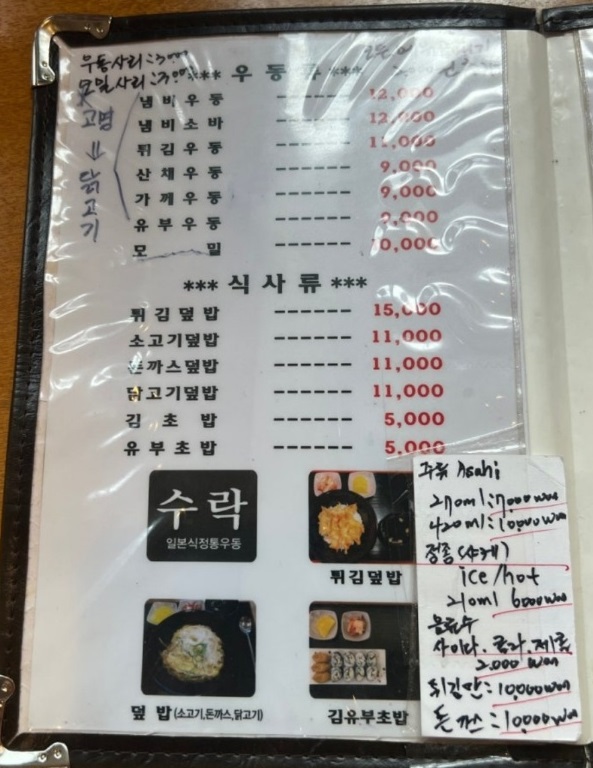 우동사리:3.000
모밀사리:3.000
*** 우 동 류 ***
고명
⇓
닭고기
냄비우동 ------ 12,000
냄비소바 ------ 12,000
튀김우동 ------ 11,000
산채우동 ------ 9,000
가께우동 ------ 9,000
유부우동 ------ 9,000
모 밀 ------ 10,000
*** 식 사 류 ***
튀김덮밥 ------ 15,000
소고기덮밥 ------ 11,000
돈까스덮밥 ------ 11,000
닭고기덮밥 ------ 11,000
김 초 밥 ------ 5,000
유부초밥 ------ 5,000
수락
일본식정통우동
튀김덮밥
덮 밥(소고기,돈까스,닭고기)
김유부초밥
Asahi
270ml:7,000won
420ml:10,000won
정종(사케)
ice/hot
210ml 6000won
음료수
사이다.콜라.제로
2.000 won
튀김만:10,000won
돈까스:10,000won